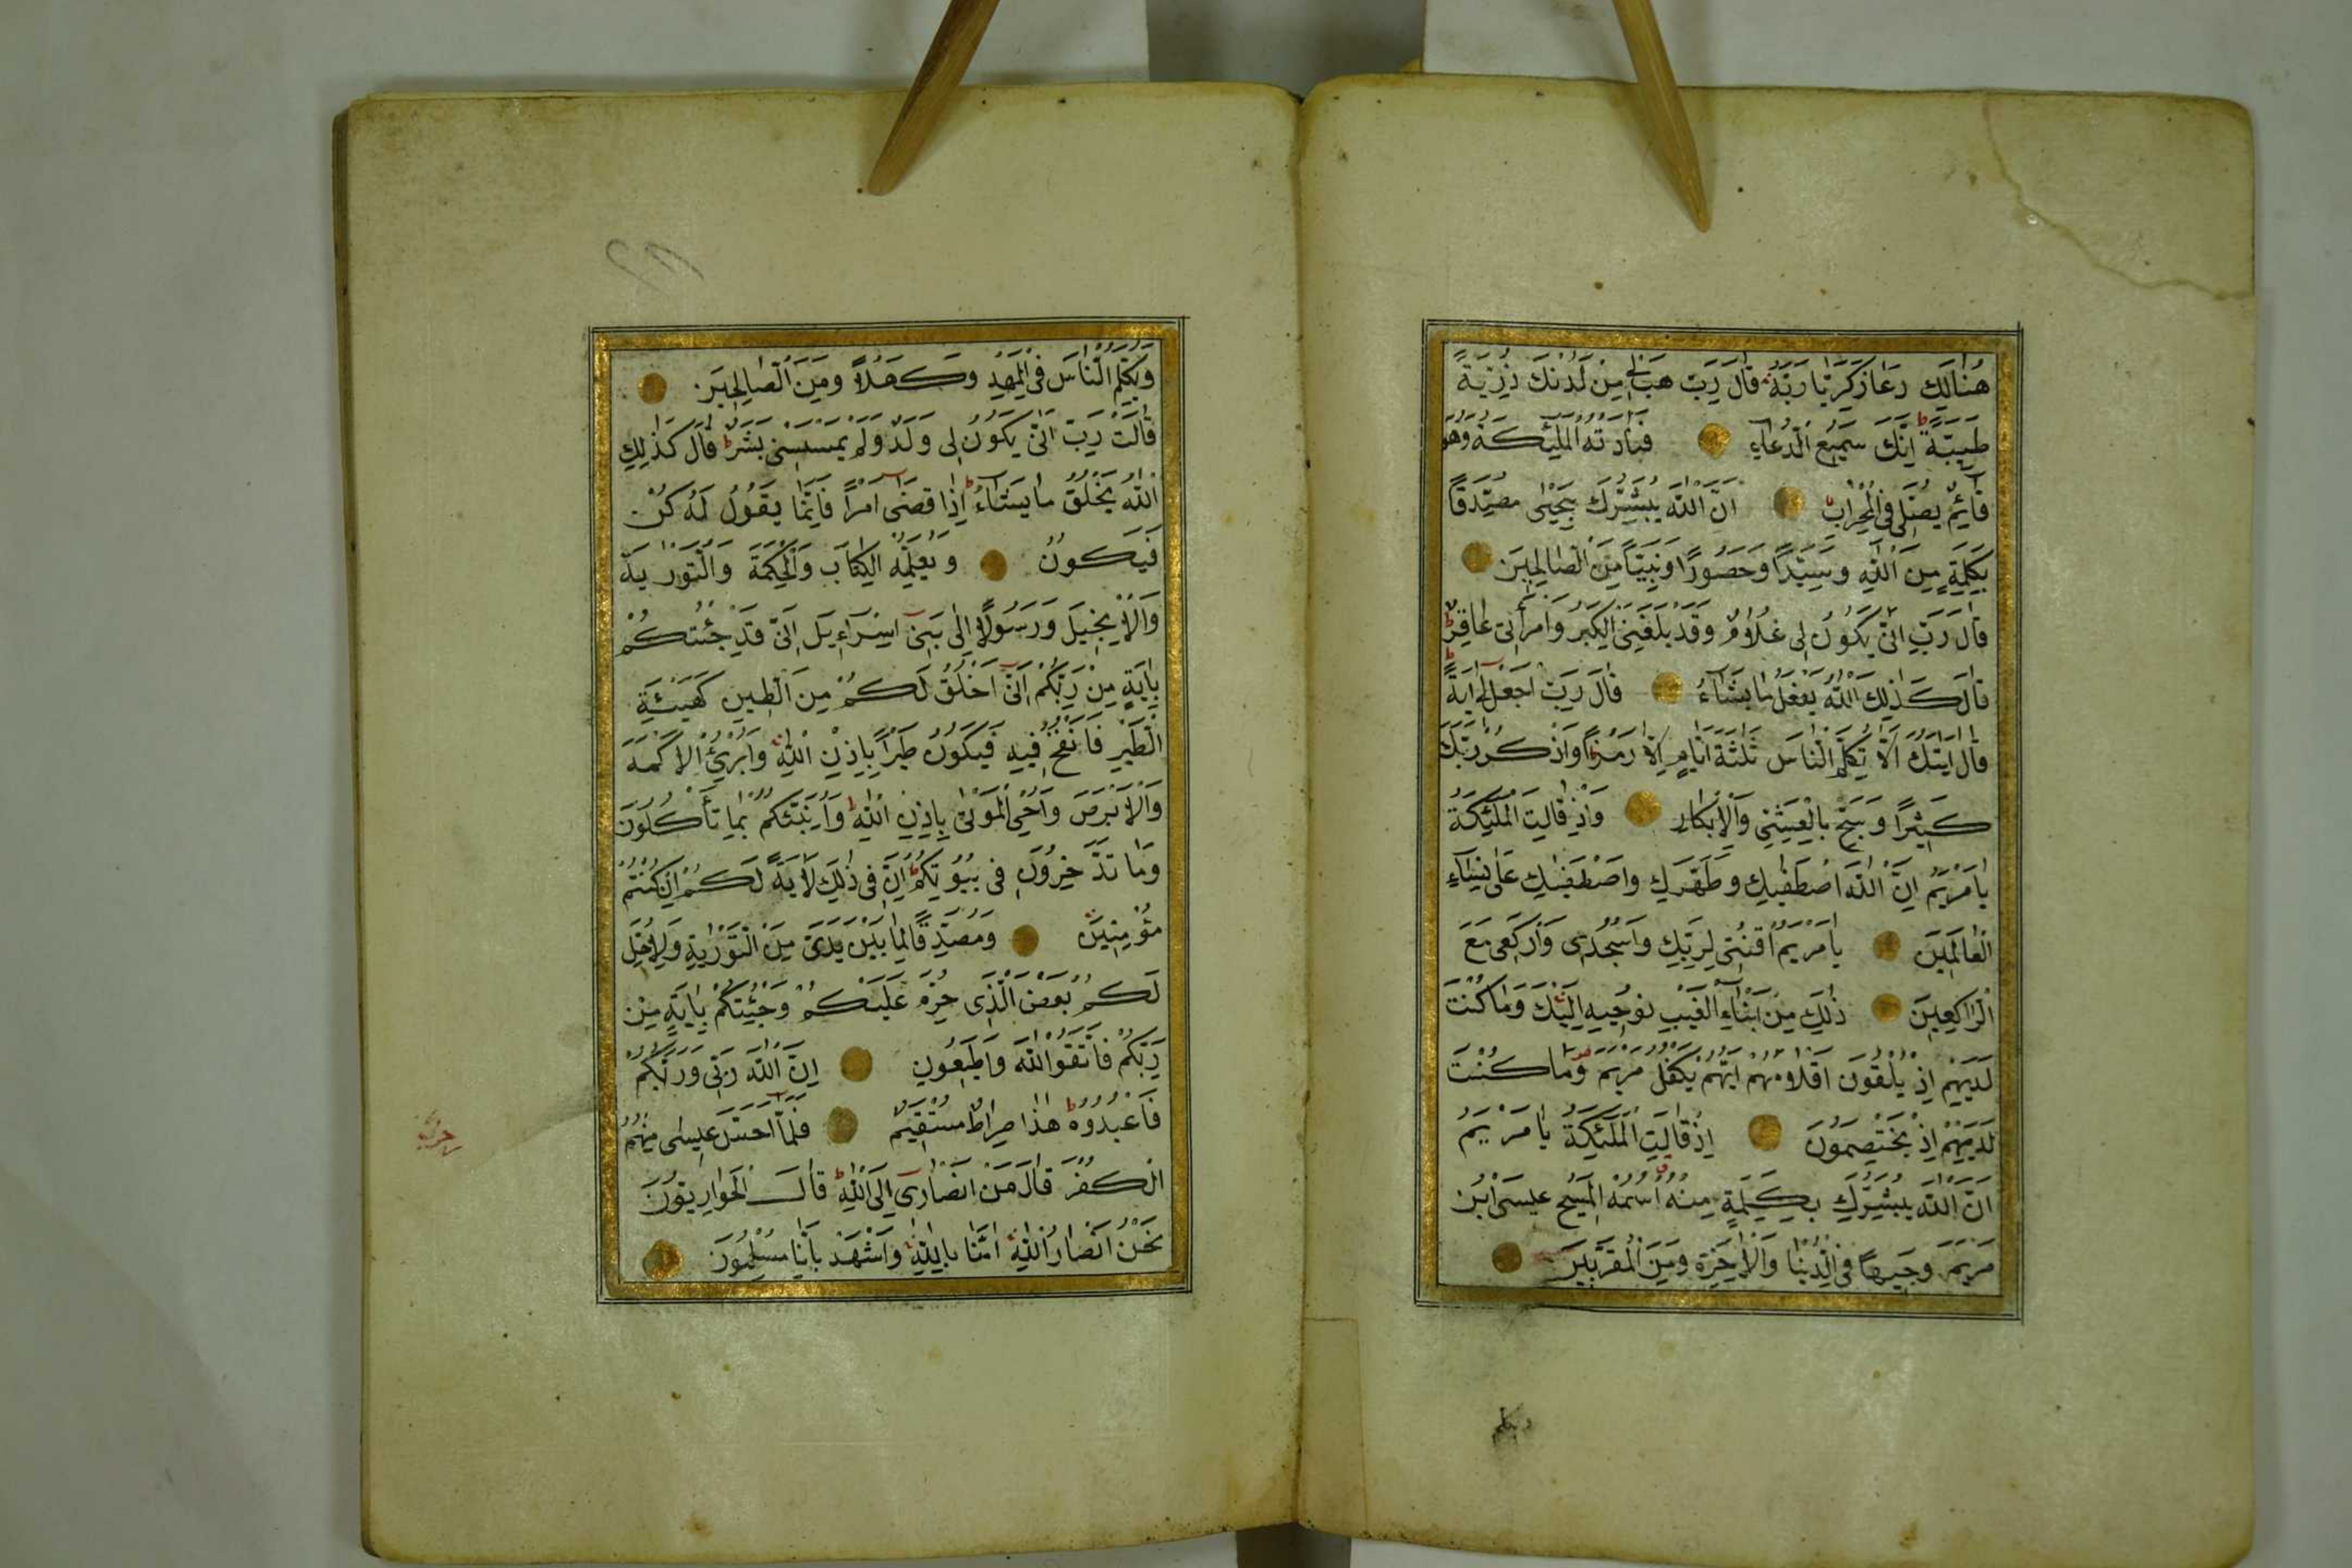 هُنَالِكَ دَعَا زَكَرِيَّا رَبَّهُ قَالَ رَبِّ هَبْ لِي مِنْ لَدُنْكَ ذُرِّيَّةً
طَيِّبَةً اِنَّكَ سَمِيعُ الدُّعَاءِ فَنَادَتْهُ الْمَلٰئِكَةُ وَهُوَ
قَائِمٌ يُصَلِّى فِى الْمِحْرَابِ اَنَّ اللّٰهَ يُبَشِّرُكَ بِيَحْيٰى مُصَدِّقًا
بِكَلِمَةٍ مِنَ اللّٰهِ وَسَيِّدًا وَحَصُورًا وَنَبِيًّا مِنَ الصَّالِحِينَ
قَالَ رَبِّ اَنّٰى يَكُونُ لِى غُلَامٌ وَقَدْ بَلَغَنِىَ الْكِبَرُ وَامْرَاَتِى عَاقِرٌ
قَالَ كَذٰلِكَ اللّٰهُ يَفْعَلُ مَا يَشَاءُ قَالَ رَبِّ اجْعَلْ لِى اٰيَةً
قَالَ اٰيَتُكَ اَلَّا تُكَلِّمَ النَّاسَ ثَلٰثَةَ اَيَّامٍ اِلَّا رَمْزًا وَاذْكُرْ رَبَّكَ
كَثِيرًا وَسَبِّحْ بِالْعَشِيِّ وَالْاِبْكَارِ وَاِذْ قَالَتِ الْمَلٰئِكَةُ
يَا مَرْيَمُ اِنَّ اللّٰهَ اصْطَفٰيكِ وَطَهَّرَكِ وَاصْطَفٰيكِ عَلٰى نِسَاءِ
الْعَالَمِينَ يَا مَرْيَمُ اقْنُتِى لِرَبِّكِ وَاسْجُدِى وَارْكَعِى مَعَ
الرَّاكِعِينَ ذٰلِكَ مِنْ اَنْبَاءِ الْغَيْبِ نُوحِيهِ اِلَيْكَ وَمَا كُنْتَ
لَدَيْهِمْ اِذْ يُلْقُونَ اَقْلَامَهُمْ اَيُّهُمْ يَكْفُلُ مَرْيَمَ وَمَا كُنْتَ
لَدَيْهِمْ اِذْ يَخْتَصِمُونَ اِذْ قَالَتِ الْمَلٰئِكَةُ يَا مَرْيَمُ
اِنَّ اللّٰهَ يُبَشِّرُكِ بِكَلِمَةٍ مِنْهُ اسْمُهُ الْمَسِيحُ عِيسَى ابْنُ
مَرْيَمَ وَجِيهًا فِى الدُّنْيَا وَالْاٰخِرَةِ وَمِنَ الْمُقَرَّبِينَ
ويكلم
وَيُكَلِّمُ النَّاسَ فِى الْمَهْدِ وَكَهْلًا وَمِنَ الصَّالِحِينَ
قَالَتْ رَبِّ اَنّٰى يَكُونُ لِى وَلَدٌ وَلَمْ يَمْسَسْنِى بَشَرٌ قَالَ كَذٰلِكِ
اللّٰهُ يَخْلُقُ مَا يَشَاءُ اِذَا قَضٰى اَمْرًا فَاِنَّمَا يَقُولُ لَهُ كُنْ
فَيَكُونُ وَيُعَلِّمُهُ الْكِتَابَ وَالْحِكْمَةَ وَالتَّوْرٰيةَ
وَالْاِنْجِيلَ وَرَسُولًا اِلٰى بَنِى اِسْرَاءِيلَ اَنِّى قَدْ جِئْتُكُمْ
بِاٰيَةٍ مِنْ رَبِّكُمْ اَنِّى اَخْلُقُ لَكُمْ مِنَ الطِّينِ كَهَيْئَةِ
الطَّيْرِ فَاَنْفُخُ فِيهِ فَيَكُونُ طَيْرًا بِاِذْنِ اللّٰهِ وَاُبْرِئُ الْاَكْمَهَ
وَالْاَبْرَصَ وَاُحْيِى الْمَوْتٰى بِاِذْنِ اللّٰهِ وَاُنَبِّئُكُمْ بِمَا تَأْكُلُونَ
وَمَا تَدَّخِرُونَ فِى بُيُوتِكُمْ اِنَّ فِى ذٰلِكَ لَاٰيَةً لَكُمْ اِنْ كُنْتُمْ
مُؤْمِنِينَ وَمُصَدِّقًا لِمَا بَيْنَ يَدَىَّ مِنَ التَّوْرٰيةِ وَلِاُحِلَّ
لَكُمْ بَعْضَ الَّذِى حُرِّمَ عَلَيْكُمْ وَجِئْتُكُمْ بِاٰيَةٍ مِنْ
رَبِّكُمْ فَاتَّقُوا اللّٰهَ وَاَطِيعُونِ اِنَّ اللّٰهَ رَبِّى وَرَبُّكُمْ
فَاعْبُدُوهُ هٰذَا صِرَاطٌ مُسْتَقِيمٌ فَلَمَّا اَحَسَّ عِيسٰى مِنْهُمُ
الْكُفْرَ قَالَ مَنْ اَنْصَارِى اِلَى اللّٰهِ قَالَ الْحَوَارِيُّونَ
نَحْنُ اَنْصَارُ اللّٰهِ اٰمَنَّا بِاللّٰهِ وَاشْهَدْ بِاَنَّا مُسْلِمُونَ